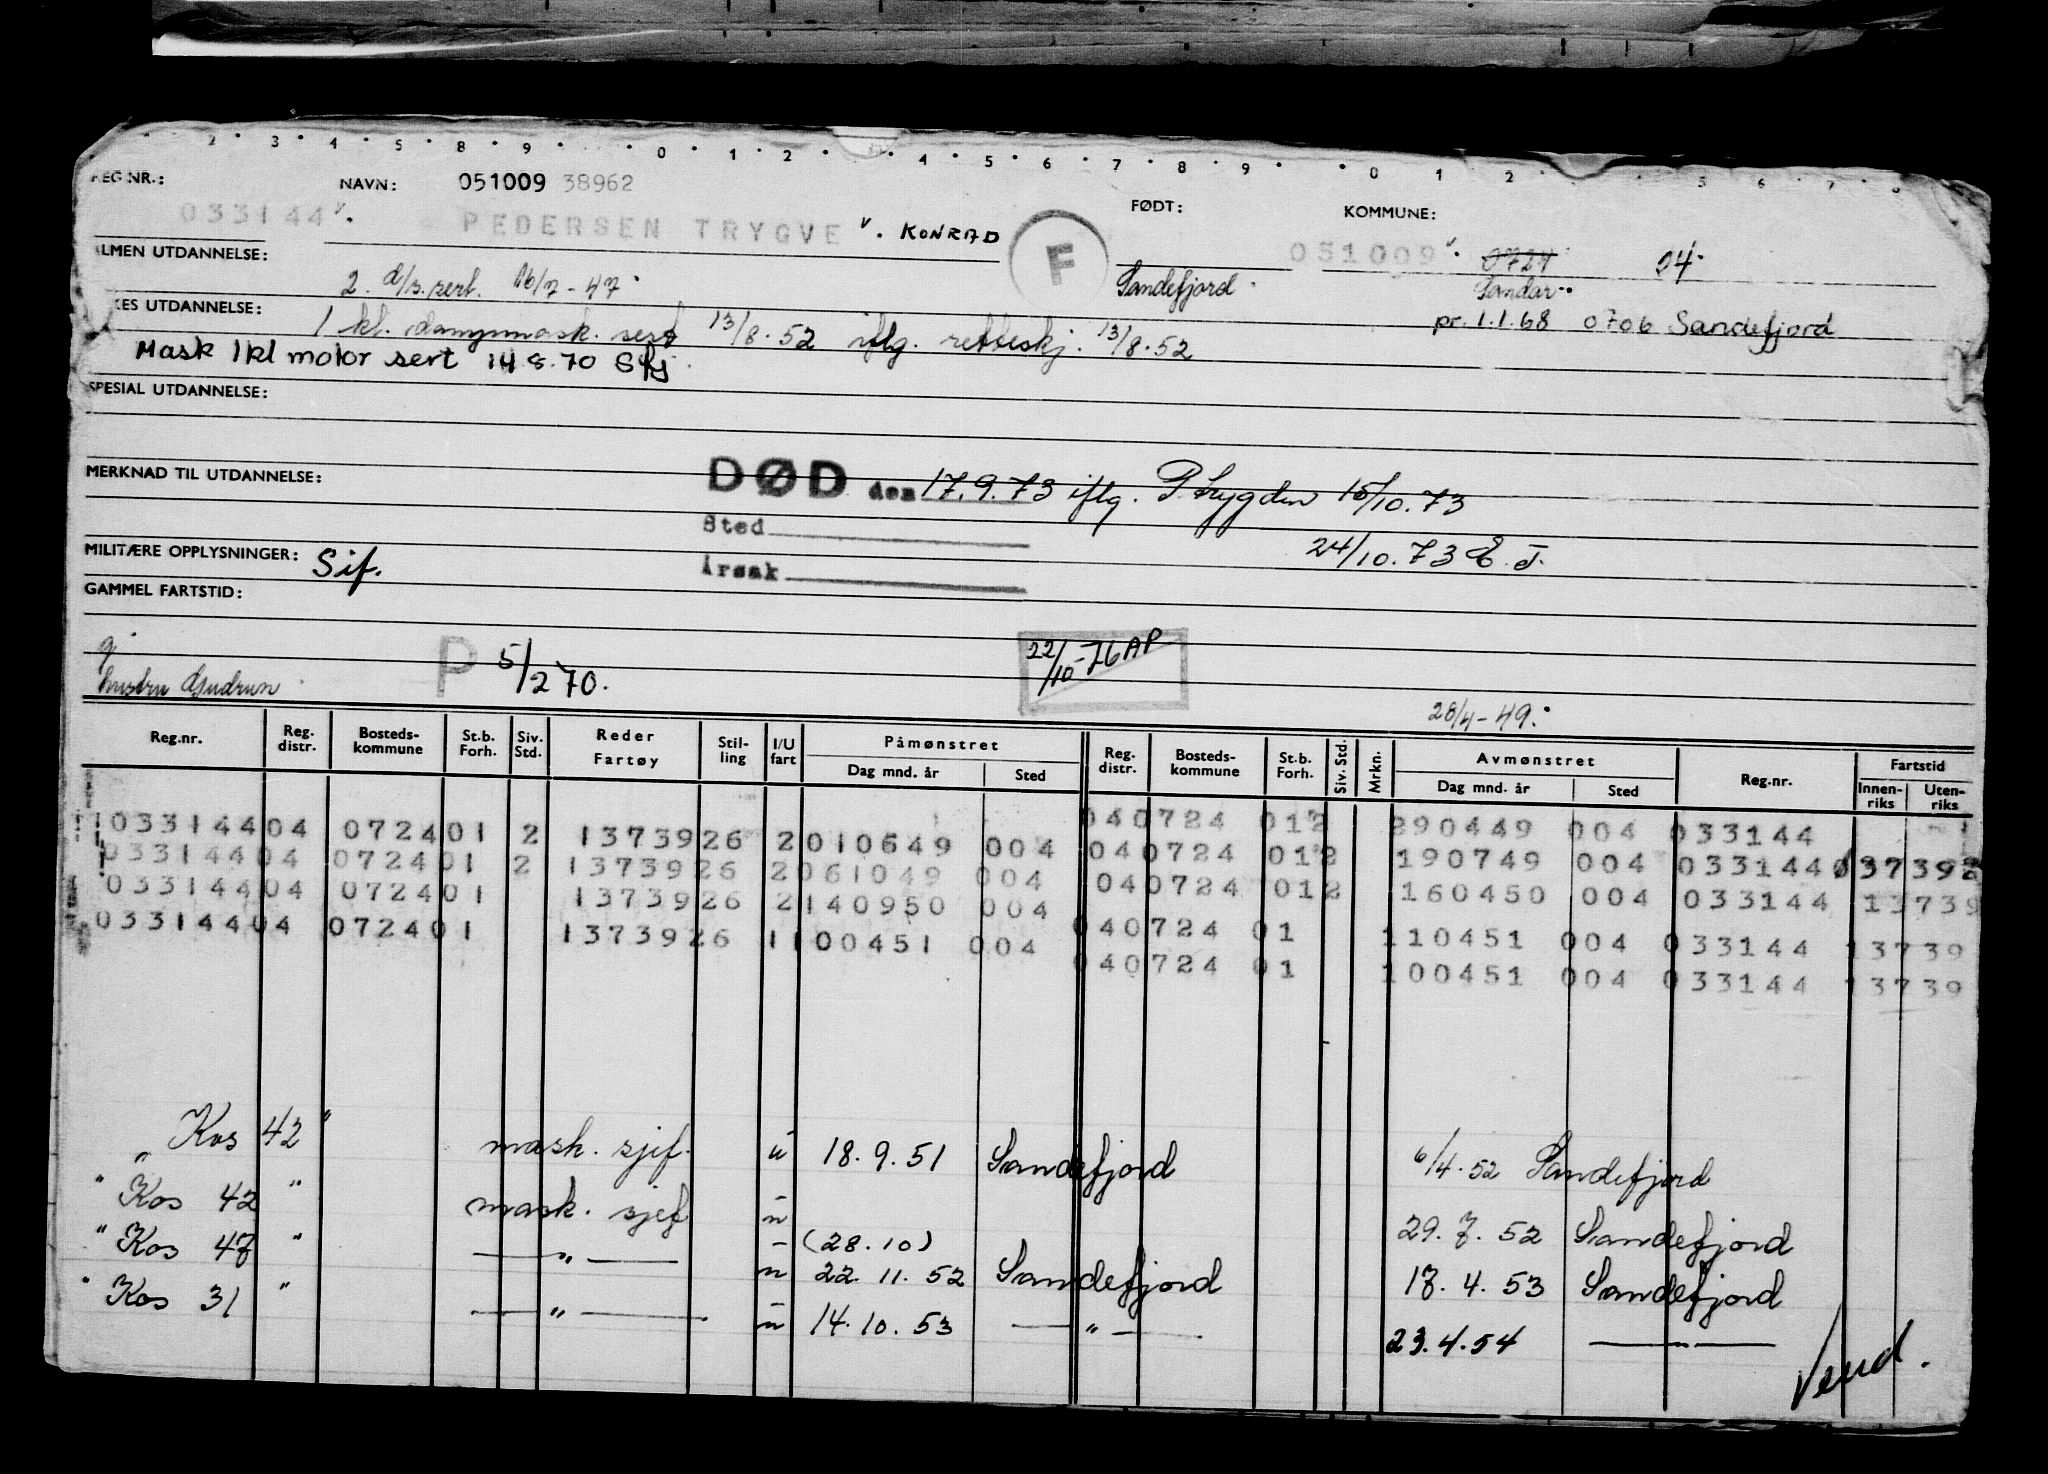 2 · 3 · 4 · 5 · 8 · 9 · 0 · 1 · 2 · 4 · 5 · 6 · 7 · 8 · 9 · 0 1 2 5 6 7
REG NR.: NAVN: 051009 38962 FØDT: KOMMUNE:
033144 v. PEDERSEN TRYGVE v. KONRAD F 051009 v. 0724 04.
ALMEN UTDANNELSE: 2. d/s. sert. 16/7-47 Sandefjord. Sandar.
KES UTDANNELSE: 1 kl. dampmask. sert 13/8.52 iflg. retteskj. 13/8.52 pr. 1.1.68 0706 Sandefjord
Mask 1 kl motor sert 14 8.70 Sfj.
SPESIAL UTDANNELSE:
MERKNAD TIL UTDANNELSE: DØD den 17.9.73 iflg. P. trygden 15/10.73
Sted
MILITÆRE OPPLYSNINGER: Sif. Årsak 24/10.73 E. J.
GAMMEL FARTSTID:
g.
hustru Gudrun P 5/270. 22/10-76 AP
28/4-49.
Reg.nr. Reg. distr. Bosteds-kommune St.b. Forh. Siv. Std. Reder Fartøy Stil-ling I/U fart Påmønstret Dag mnd. år Sted Reg. distr. Bosteds-kommune St.b. Forh. Siv. Std. Mrkn. Avmønstret Dag mnd. år Sted Reg.nr. Fartstid Innen-riks Uten-riks
040724 012 290449 004 033144
103314404 072401 2 1373926 2010649 004 040724 012 190749 004 033144 0137392
03314404 072401 2 1373926 2061049 004 040724 012 160450 004 033144 13739
03314404 072401 1373926 2140950 004 040724 01 110451 004 033144 13739
03314404 072401 1373926 1100451 004 040724 01 100451 004 033144 13739
" Kos 42 " mask. sjef. u 18.9.51 Sandefjord 6/4.52 Sandefjord
" Kos 42 " mask. sjef u 29.7.52 Sandefjord
" Kos 47 " — " — u (28.10) 22.11.52 Sandefjord 17.4.53 Sandefjord
" Kos 31 " — " — u 14.10.53 — " — 23.4.54 — " —
Vend.